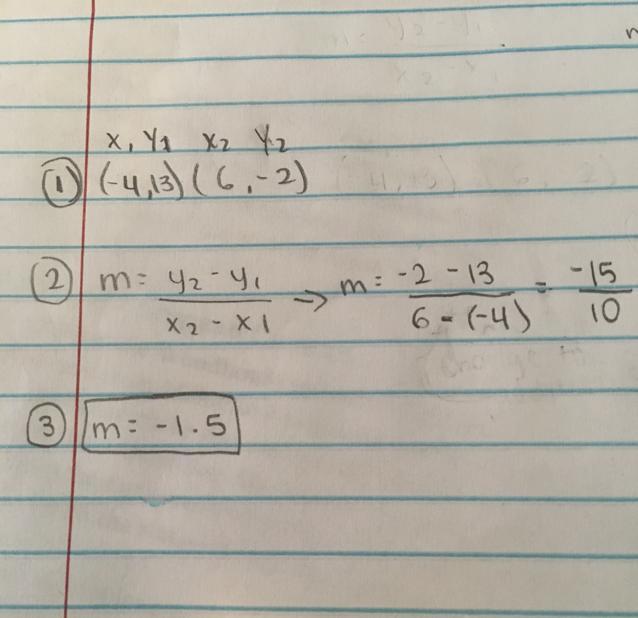 x₁ y₁ x₂ y₂
① (-4,13) (6,-2)
② m = y₂ - y₁ / x₂ - x₁ → m = -2 - 13 / 6 - (-4) = -15 / 10
③ m = -1.5